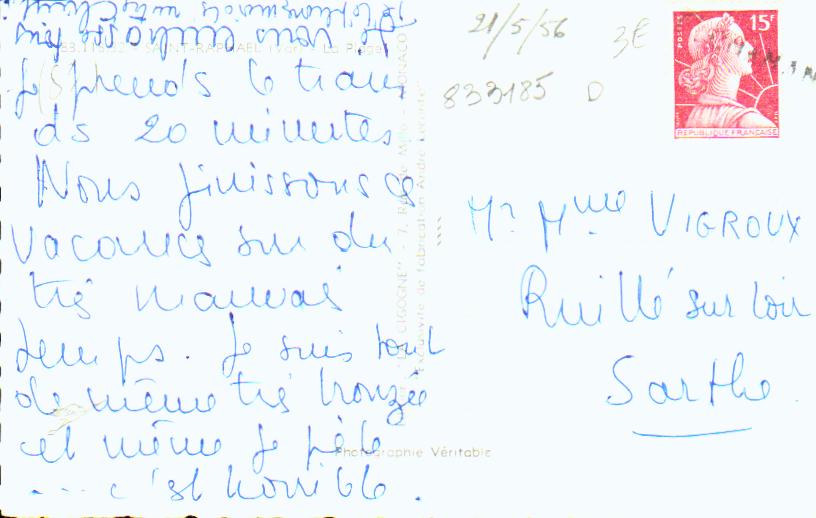 Je prends le train
de 20 minutes
Nous finissons ces
vacances sur du
très mauvais
temps. Je suis tout
de même très bronzée
et même je pèle
... c'est horrible.
SAINT-RAPHAEL (Var) La Plage
"LA CIGOGNE" - 7,
MONACO
Exclusivité de fabrication André Leconte
Photographie Véritable
21/5/56
3E
833185 D
POSTES
15F
REPUBLIQUE FRANÇAISE
Mr Mme VIGROUX
Ruillé sur Loir
Sarthe.